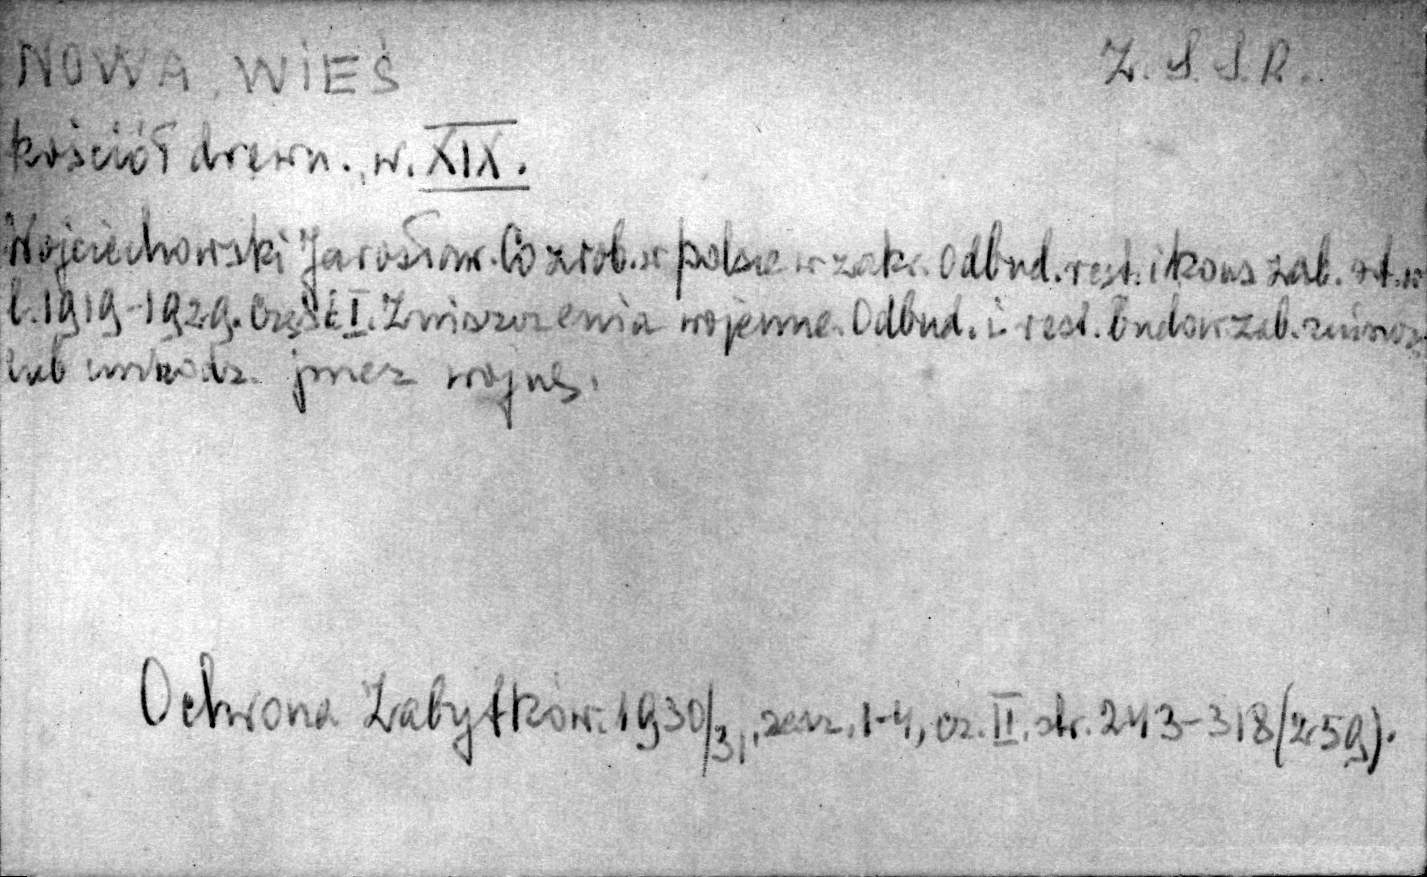 NOWA WIEŚ Z. S. S. R.
kościół drewn., w. XIX.
Wojciechowski Jarosław. Co zrob. w Polsce w zakr. Odbud. rest. i kons zab. szt. w
l. 1919-1929. Część I. Zniszczenia wojenne. Odbud. i rest. budow zab. zniszcz
lub uszkodz. przez wojnę.
Ochrona Zabytków. 1930/31, zesz. 1-4, cz. II, str. 243-318 (259).